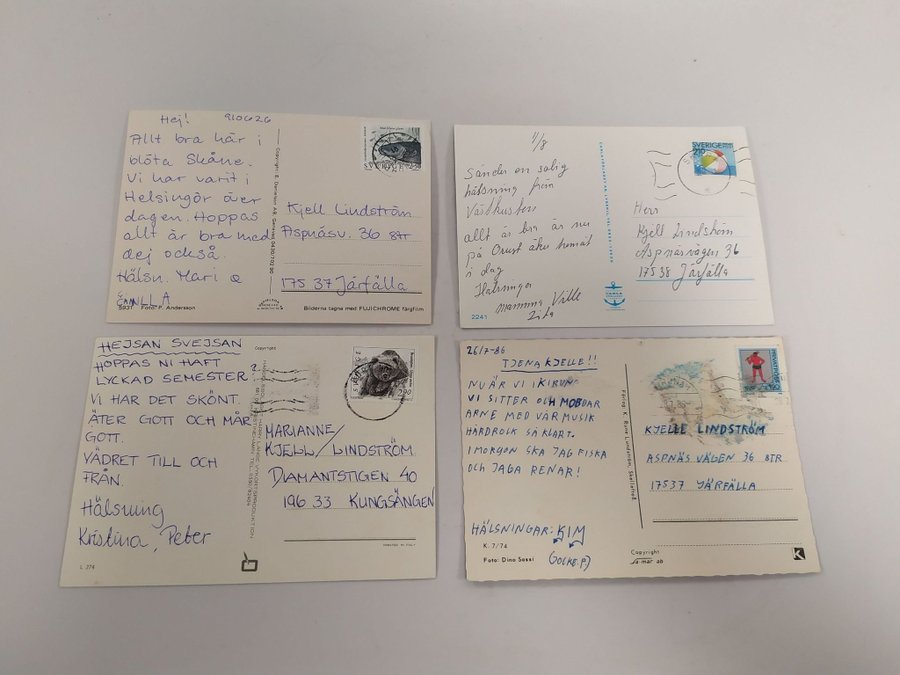 Hej! 910626
Allt bra här i
blöta Skåne.
Vi har varit i
Helsingör över
dagen. Hoppas
allt är bra med
dej också.
Hälsn. Mari &
CAMILLA
Kjell Lindström
Aspnäsv. 36 8tr
175 37 Järfälla
5931 Foto: P. Andersson
Bilderna tagna med FUJICHROME färgfilm
1/8
Sänder en solig
hälsning från
Västkusten
allt är bra är nu
på Orust åker hemåt
i dag
Hälsningar
mamma Ville
SVERIGE
210
Herr
Kjell Lindström
Aspnäsvägen 36
175 38 Järfälla
2241
HEJSAN SVEJSAN
HOPPAS NI HAFT
LYCKAD SEMESTER.
VI HAR DET SKÖNT.
ÄTER GOTT OCH MÅR
GOTT.
VÄDRET TILL OCH
FRÅN.
Hälsning
Kristina, Peter
Copyright
MARIANNE/
KJELL/LINDSTRÖM
DIAMANTSTIGEN 40
196 33 KUNGSÄNGEN
L 374
26/7-86
TJENA KJELLE!!
NU ÄR VI I KIRUNA
VI SITTER OCH MOBBAR
ARNE MED VÅR MUSIK
HÅRDROCK SÅ KLART.
I MORGON SKA JAG FISKA
OCH JAGA RENAR!
HÄLSNINGAR: KIM
KJELLE LINDSTRÖM
ASPNÄS VÄGEN 36 8TR
17537 JÄRFÄLLA
K. 7/74
Foto: Dino Sassi
Copyright
K